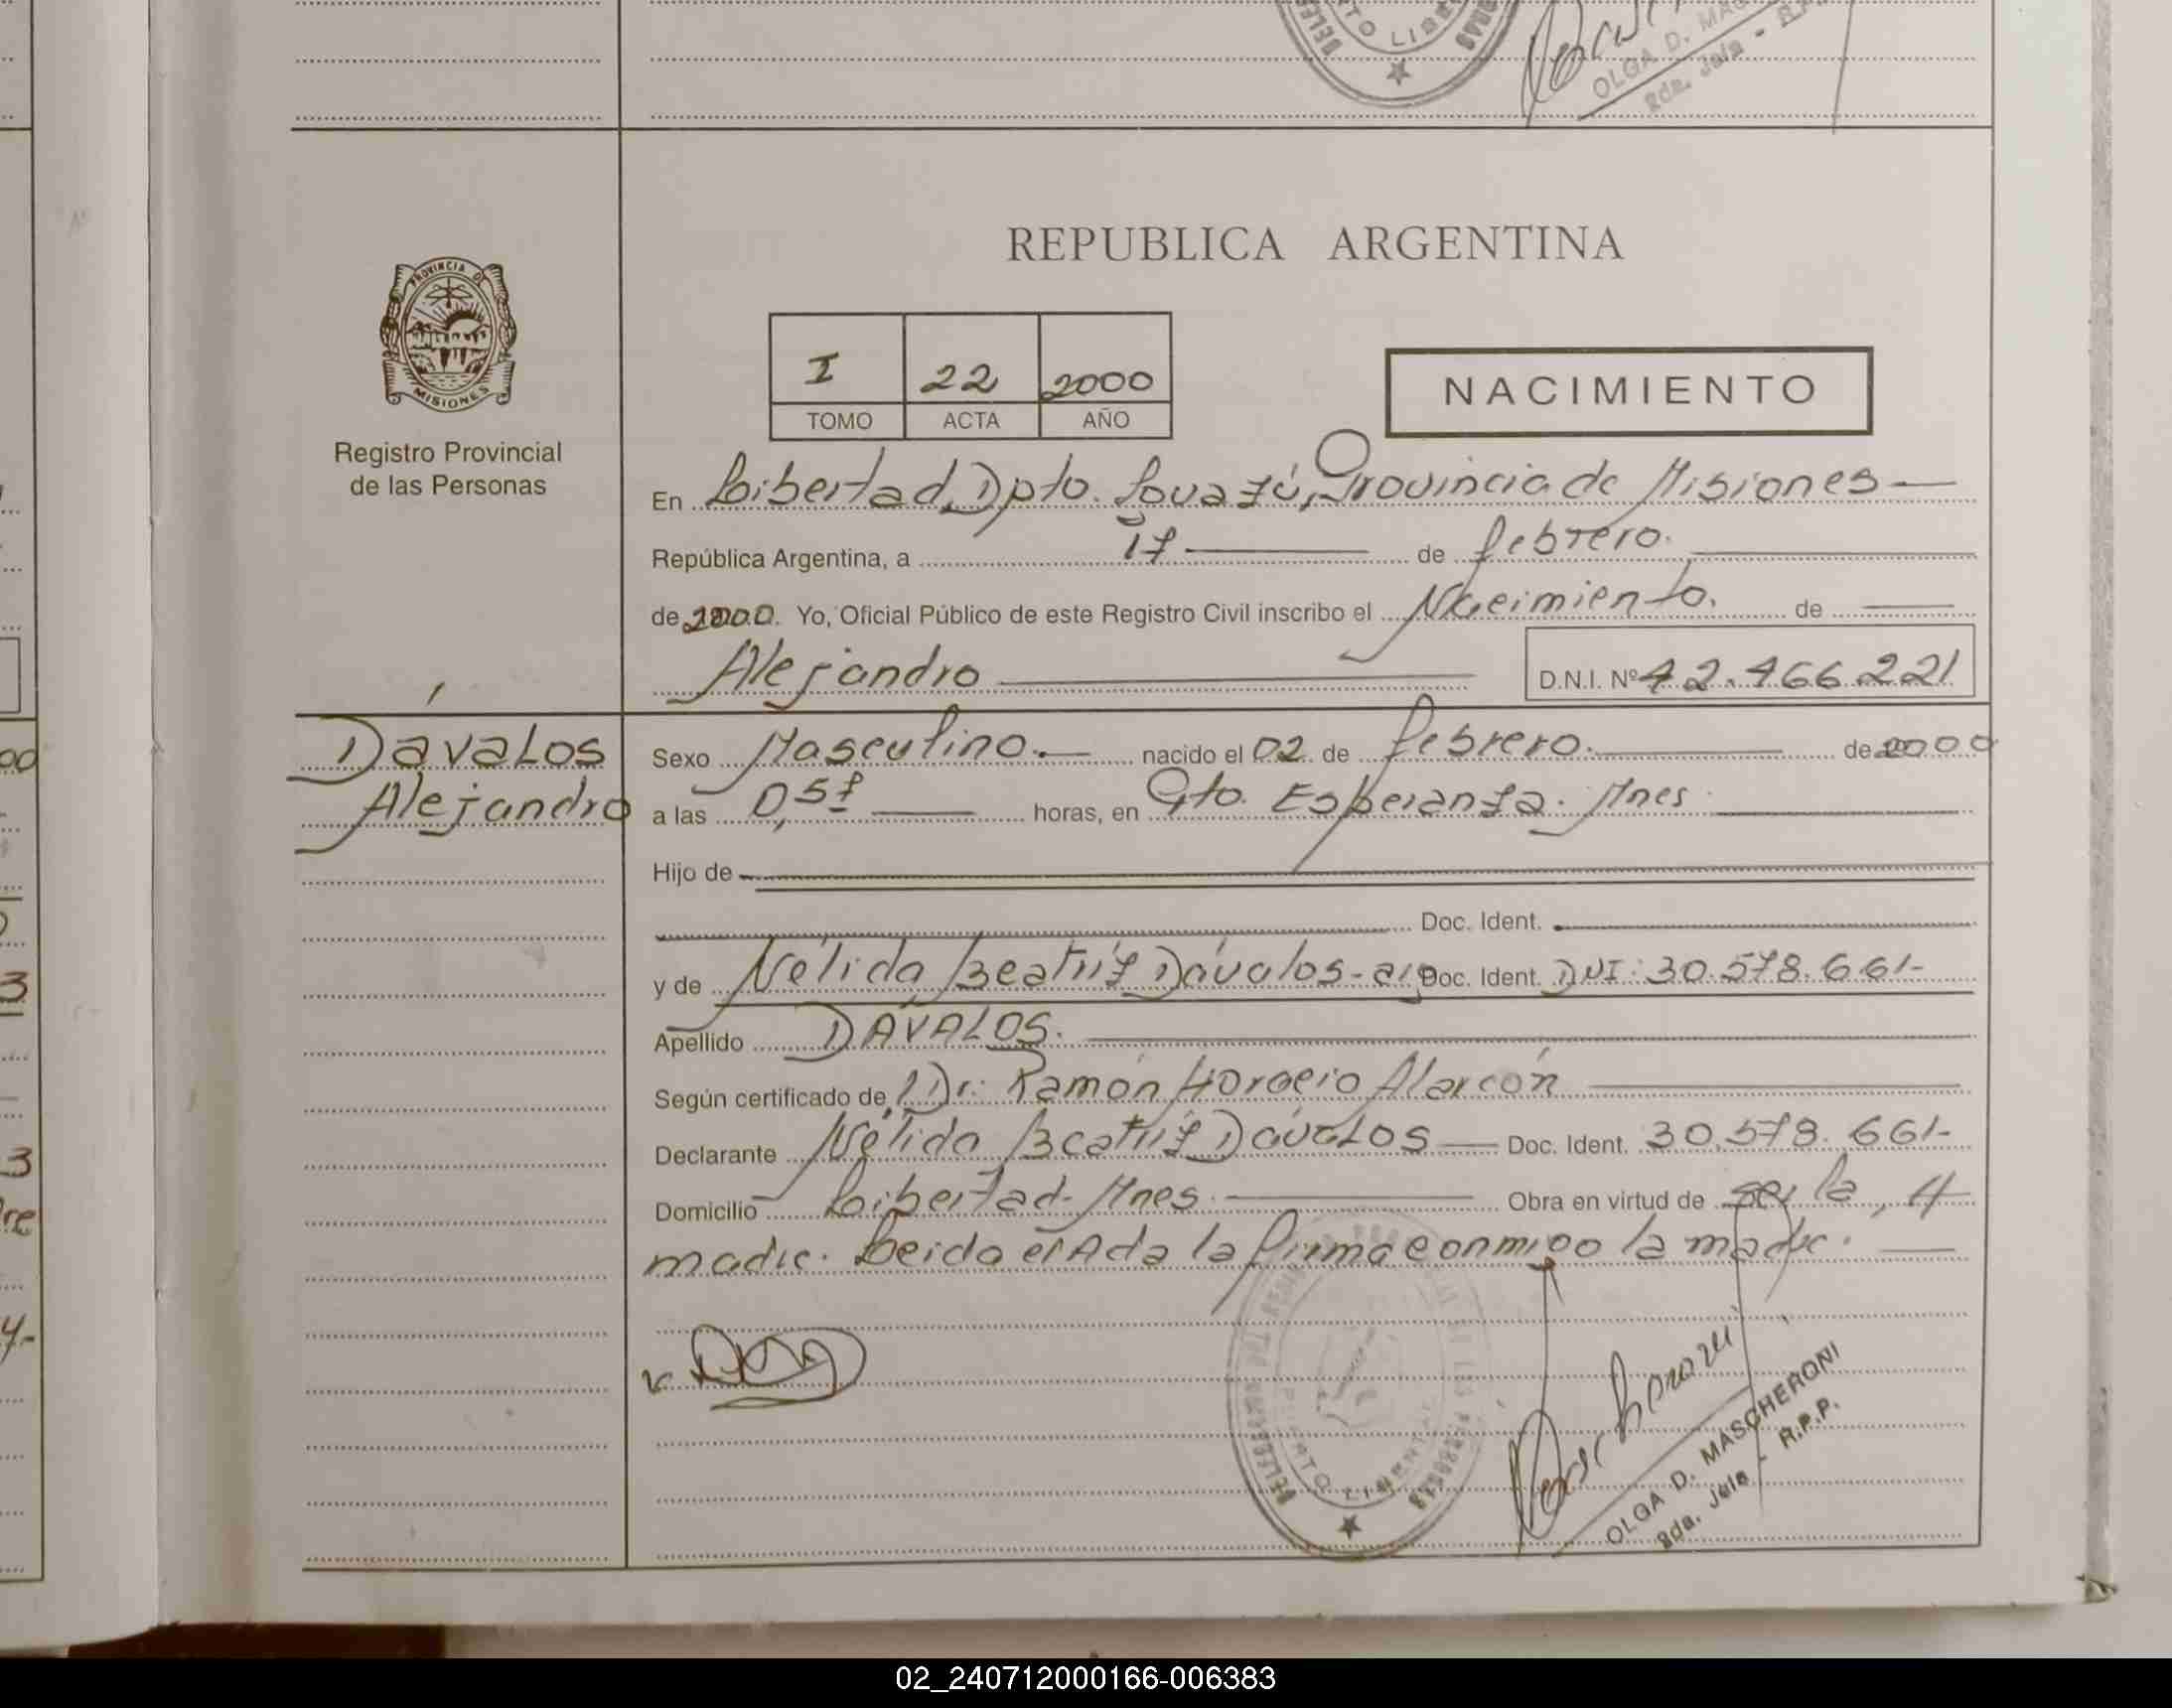 PUERTO LIBER
OLGA D. MAS
2da. Jefa - R.P.
REPUBLICA ARGENTINA
PROVINCIA DE
MISIONES
Registro Provincial
de las Personas
I 22 2000
TOMO ACTA AÑO
NACIMIENTO
En Libertad, Dpto. Iguazú, Provincia de Misiones
República Argentina, a 17 de febrero.
de 2000. Yo, Oficial Público de este Registro Civil inscribo el Nacimiento. de
Alejandro D.N.I. Nº 42.466.221
DÁVALOS
Alejandro
Sexo Masculino. nacido el 02 de febrero. de 2000
a las 0,57 horas, en Pto. Esperanza. Mnes.
Hijo de
Doc. Ident.
y de Nélida Beatriz Dávalos - arg Doc. Ident. DNI: 30.578.661-
Apellido DÁVALOS.
Según certificado de Dr: Ramón Horacio Alarcón
Declarante Nélida Beatriz Dávalos Doc. Ident. 30.578.661-
Domicilio Libertad - Mnes. Obra en virtud de ser la
madre. Leida el Acta la firma conmigo la madre.
DELEG
PUERTO LIBERTAD
OLGA D. MASCHERONI
2da. Jefa - R.P.P.
00
3
3
re
4-
02_240712000166-006383